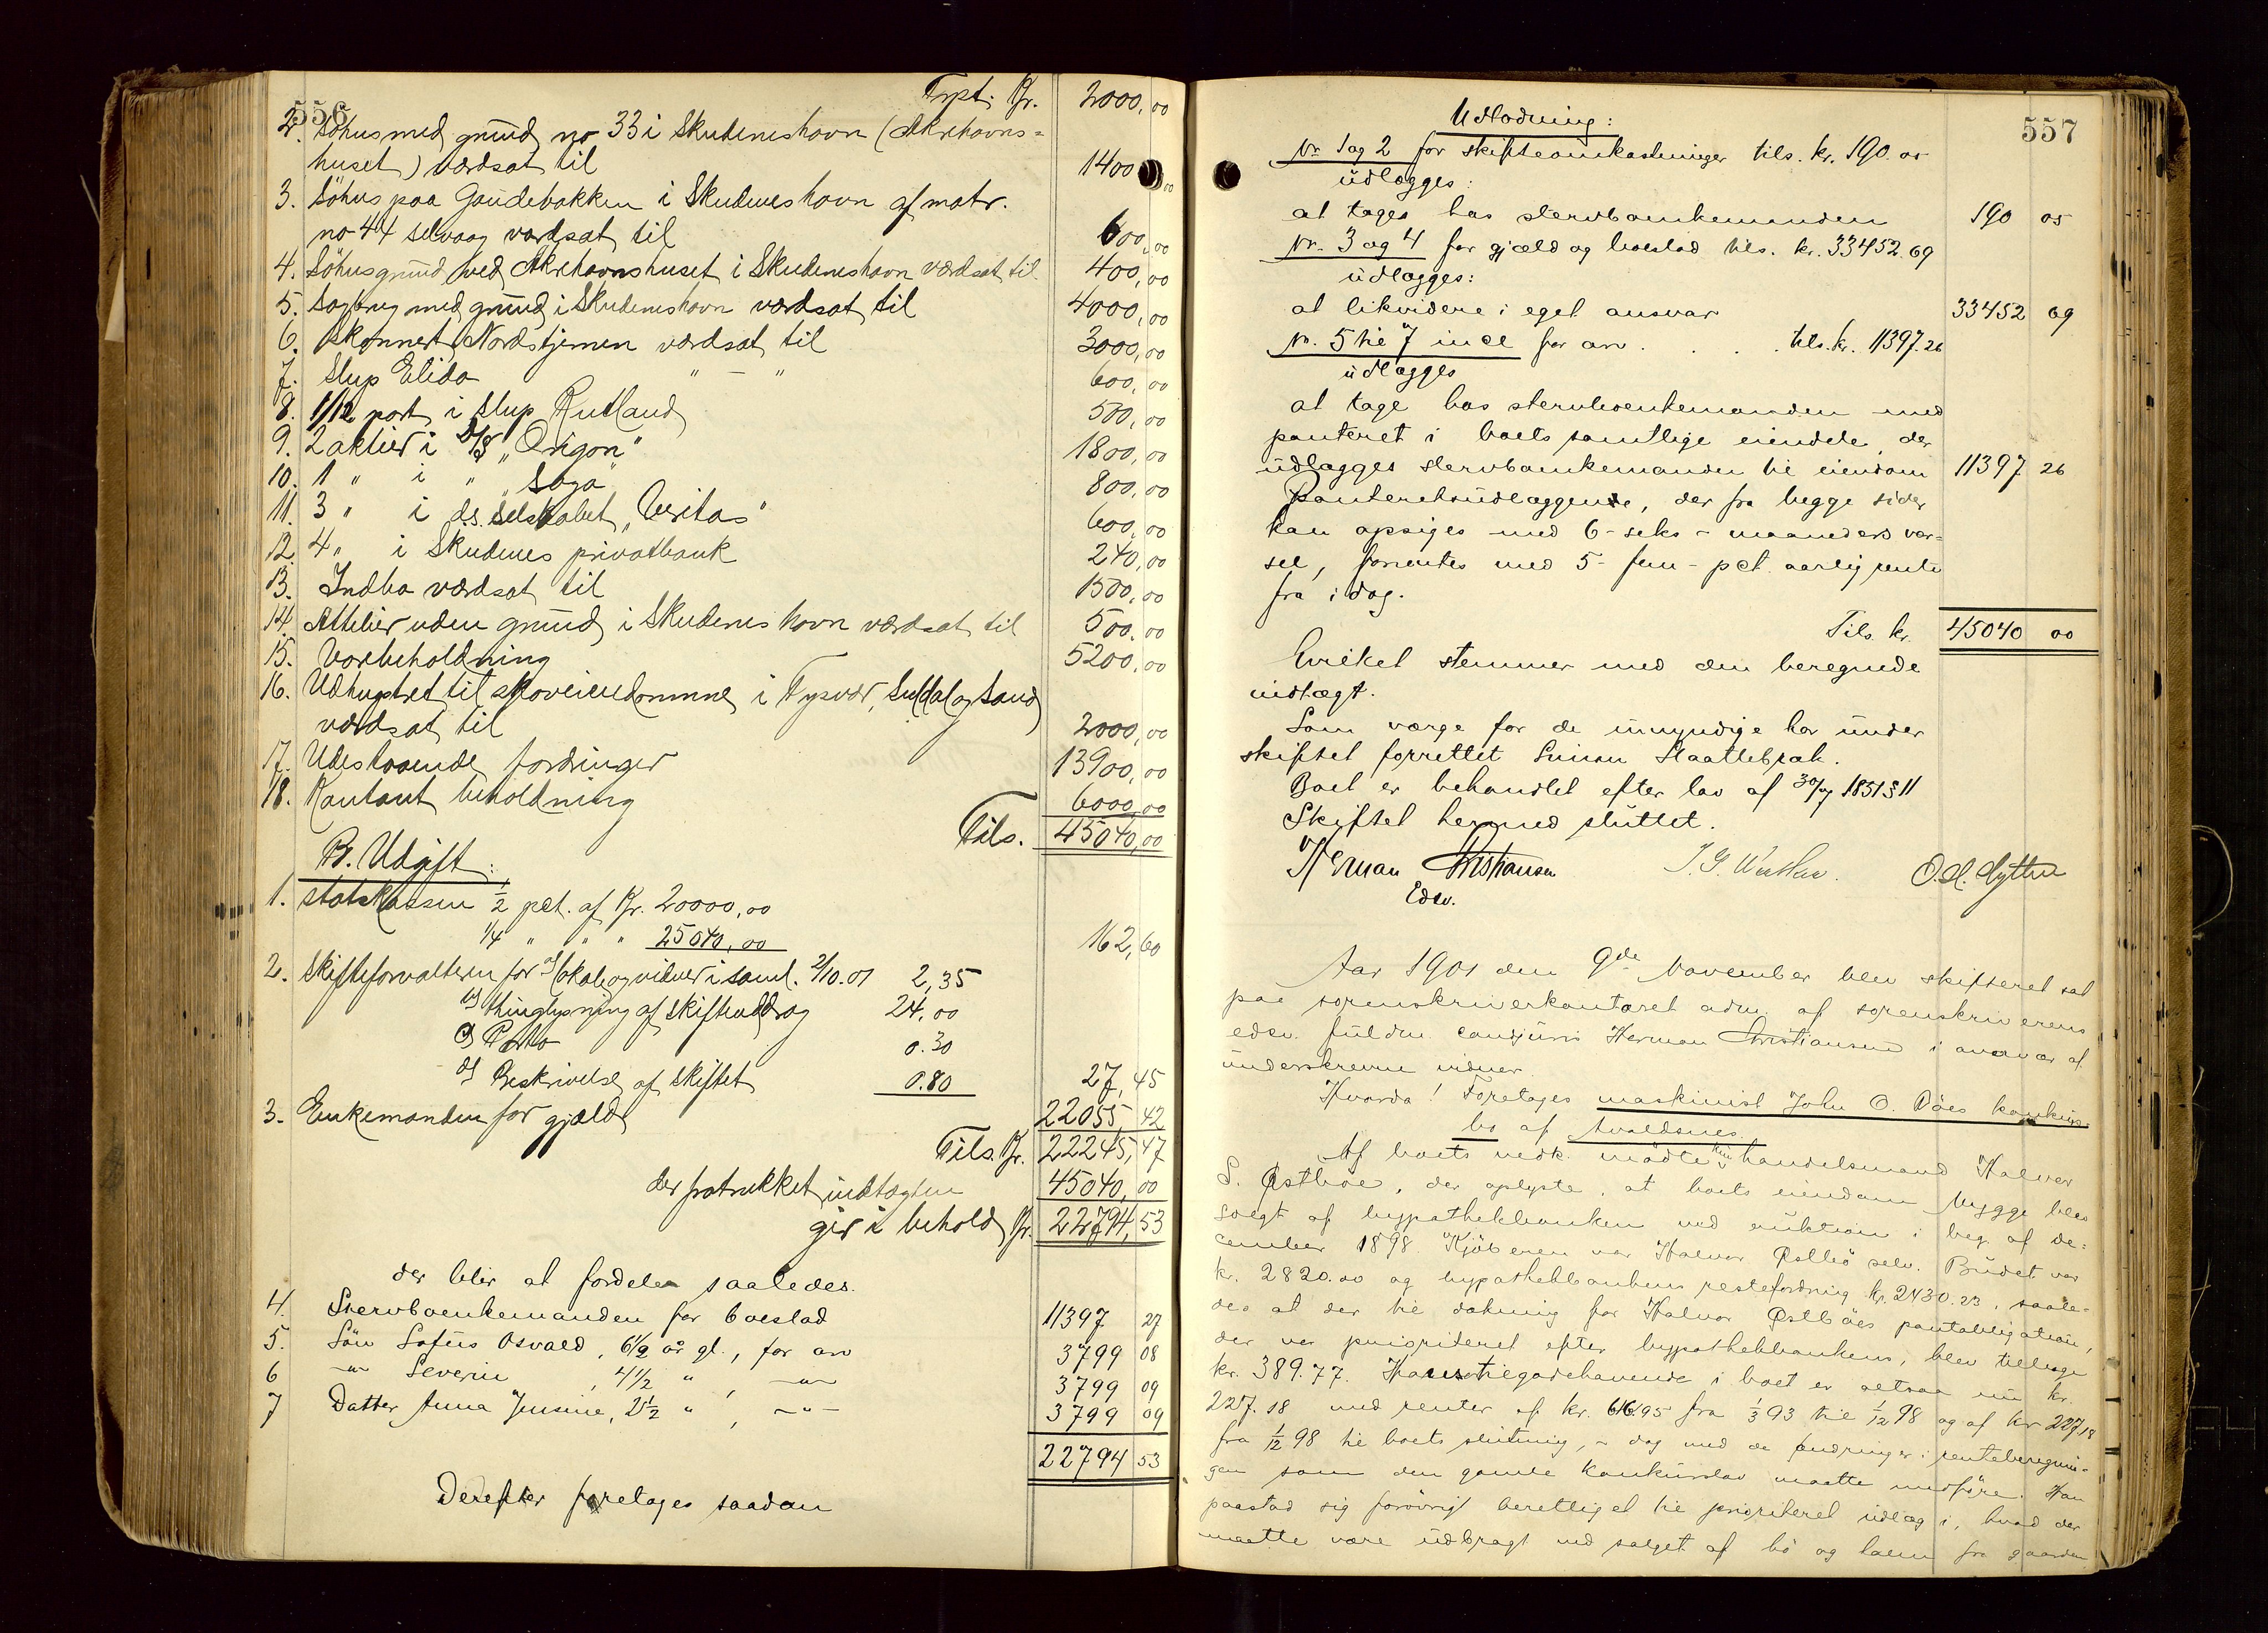 556
Trpt. Kr. 2000,00
2. Söhus med grund no 33 i Skudeneshavn (Akrehavns=
huset) værdsat til 1400,00
3. Söhus paa Gaudebakken i Skudeneshavn af matr.
no 44 Selvaag værdsat til 600,00
4. Söhusgrund ved Akrehavnshuset i Skudeneshavn værdsat til 400,00
5. Sagbrug med grund i Skudeneshavn værdsat til 4000,00
6. Skonnert Nordstjernen værdsat til 3000,00
7. Slup Elida " — " 600,00
8. 1/12 part i slup Rutland 500,00
9. 2 aktier i D/S „Origon" 1800,00
10. 1 " i " „Saga" 800,00
11. 3 " i d.s. selskabet „Veritas" 600,00
12. 4 " i Skudenes privatbank 240,00
13. Indbo værdsat til 1500,00
14. Attelier uden grund i Skudeneshavn værdsat til 500,00
15. Varebeholdning 5200,00
16. Udhugstret til skoveiendomme i Tysvær, Suldal og Sand
værdsat til 2000,00
17. Udestaaende fordringer 13900,00
18. Kontant beholdning 6000,00
Tils. 45040,00
B. Udgift:
1. Statskassen 1/2 pct. af Kr. 20000,00
1/4 " " " 25040,00 162,60
2. Skifteforvalteren for a) lokale og vidner i saml. 2/10.01 2,35
b) thinglysning af skifteuddrag 24,00
c) Porto 0.30
d) Beskrivelse af skiftet 0.80 27,45
3. Enkemanden for gjæld 22055,42
Tils. Kr. 22245,47
der fratrukket indtægten 45040,00
gir i behold Kr. 22794,53
der blir at fordele saaledes.
4. Stervboenkemanden for boeslod 11397 27
5. Sön Sofus Osvald, 6 1/2 år gl., for arv 3799 08
6 —"— Severin, 4 1/2 ", —"— 3799 09
7 Datter Anna Jensine, 2 1/2 ", —"— 3799 09
22794 53
Derefter foretages saadan
557
Udlodning:
Nr. 1 og 2 for skifteomkostninger tils. kr. 190.05
udlægges:
at tages hos stervboenkemanden 190 05
Nr. 3 og 4 for gjæld og boeslod tils. kr. 33452.69
udlægges:
at likvidere i eget ansvar 33452 69
Nr. 5 til 7 incl for arv . . . tils. kr. 11397.26
udlægges
at tage hos stervboenkemanden med
panteret i boets samtlige eiendele, der
udlægges stervboenkemanden til eiendom 11397 26
Panteretsudlæggene, der fra begge sider
kan opsiges med 6-seks-maaneders var=
sel, forrentes med 5-fem-pct. aarlig rente
fra idag.
Tils. kr. 45040 00
hvilket stemmer med den beregnede
indtægt.
Som værge for de umyndige har under
skiftet forrettet Simon Staattebræk.
Boet er behandlet efter lov af 30/7 1851 § 11
Skiftet hermed sluttet.
Herman Christiansen
Edsv.
O. H. Lytter
Aar 1901 den 9de November blev skifteret sat
paa sorenskriverkontoret adm. af sorenskriverens
edsv. fuldm. cand juris Herman Christiansen i overvær af
underskrevne vidner.
Hvorda! Foretages maskinist John O. Döes konkurs-
bo af Avaldsnes.
Af boets vedk. mödte kun handelsmand Halvor
S. Östböe, der oplyste, at boets eiendom Nygge blev
solgt af hypothekbanken ved auktion i beg. af de=
cember 1898. Kjöberen var Halvor Östbö selv. Budet var
kr. 2820.00 og hypothekbankens restefordring kr. 2430.23, saale-
des at der til dækning for Halvor Östböes pantobligation,
der var prioriteret efter hypothekbankens, blev tilbage
kr. 389.77. Hans tilgodehavende i boet er altsaa nu kr.
227.18 med renter af kr. 616.95 fra 1/3 93 til 1/12 98 og af kr 227.18
fra 1/12 98 til boets slutning, – dog med de ændringer i renteberegnin-
gen som den gamle konkurslov maatte medföre. Han
paastod sig forövrigt berettiget til prioriteret udlæg i, hvad der
maatte være udbragt ved salget af hö og halm fra gaarden